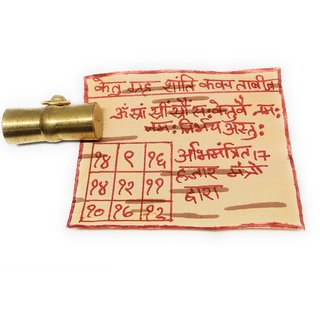 केतु ग्रह शांति कवच ताबीज
ॐ स्रां स्रीं स्रौं सः केतवे नमः
नमः विजय अस्तुः
१४ ९ १६
१४ १२ ११
१० १६ १२
अभिमंत्रित 17
हजार मंत्रो
द्वारा